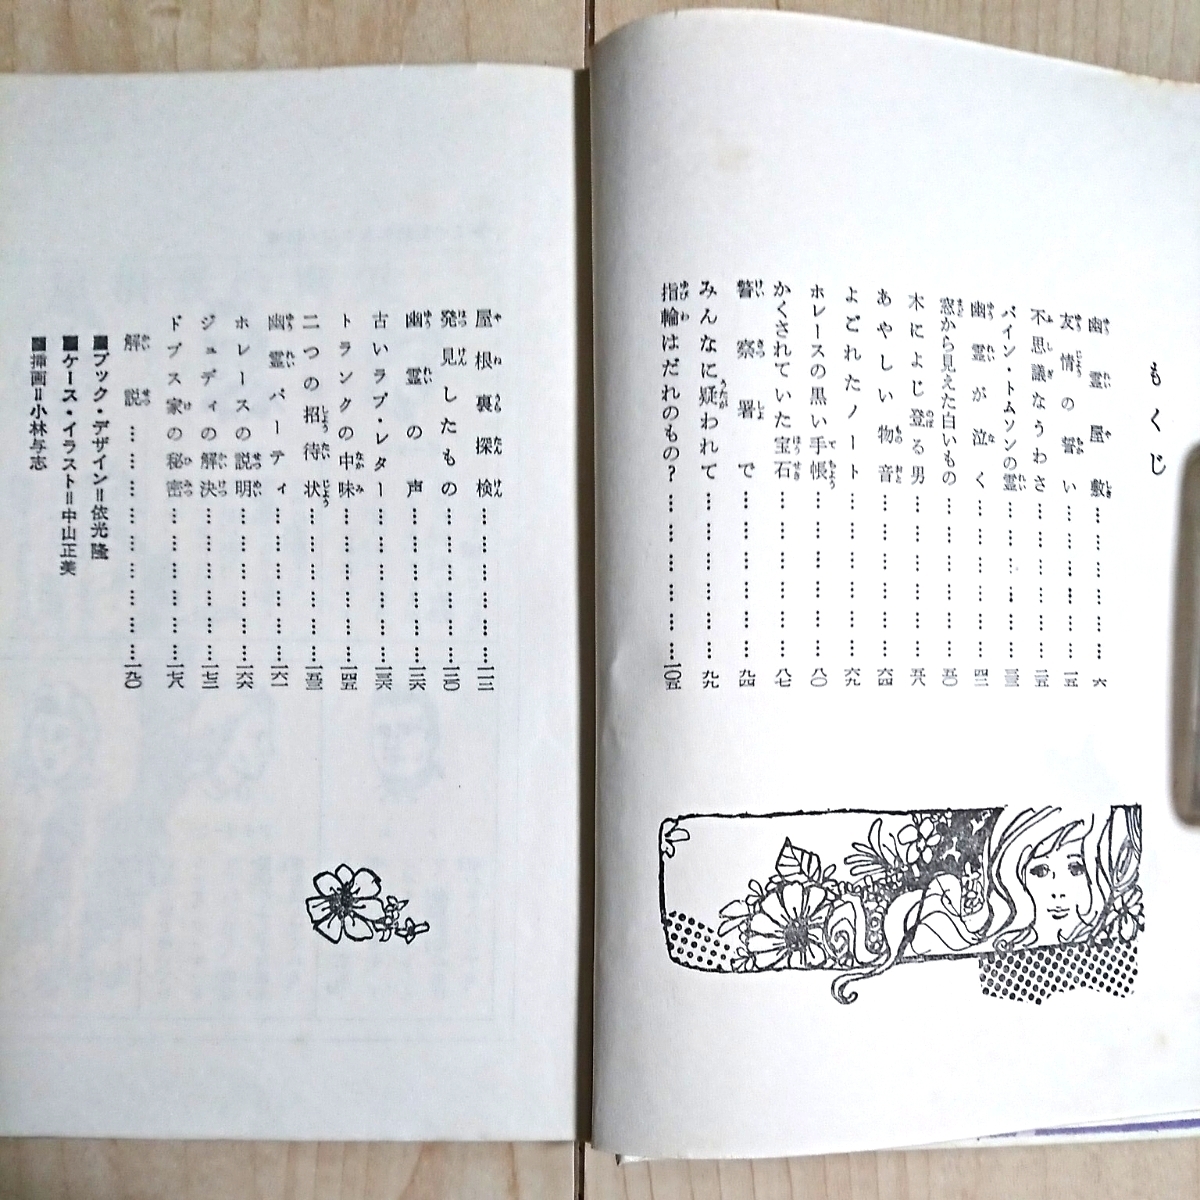 もくじ
幽霊屋敷………………………六
友情の誓い………………………一五
不思議なうわさ………………………二五
パイン・トムソンの霊………………………三三
幽霊が泣く………………………四二
窓から見えた白いもの………………………五〇
木によじ登る男………………………五八
あやしい物音………………………六四
よごれたノート………………………六九
ホレースの黒い手帳………………………八〇
かくされていた宝石………………………八七
警察署で………………………九四
みんなに疑われて………………………九九
指輪はだれのもの?………………………一〇五
屋根裏探検………………………一一二
発見したもの………………………一二〇
幽霊の声………………………一二六
古いラブ・レター………………………一三六
トランクの中味………………………一四五
二つの招待状………………………一五三
幽霊パーティ………………………一六一
ホレースの説明………………………一六六
ジュディの解決………………………一七二
ドブス家の秘密………………………一七八
解説………………………一九〇
■ブック・デザイン=依光隆
■ケース・イラスト=中山正美
■挿画=小林与志